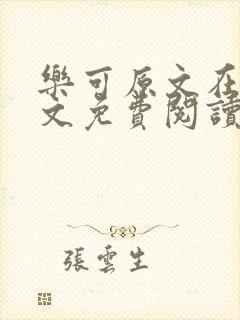 樂可原文在
文免費閱讀
張雲生